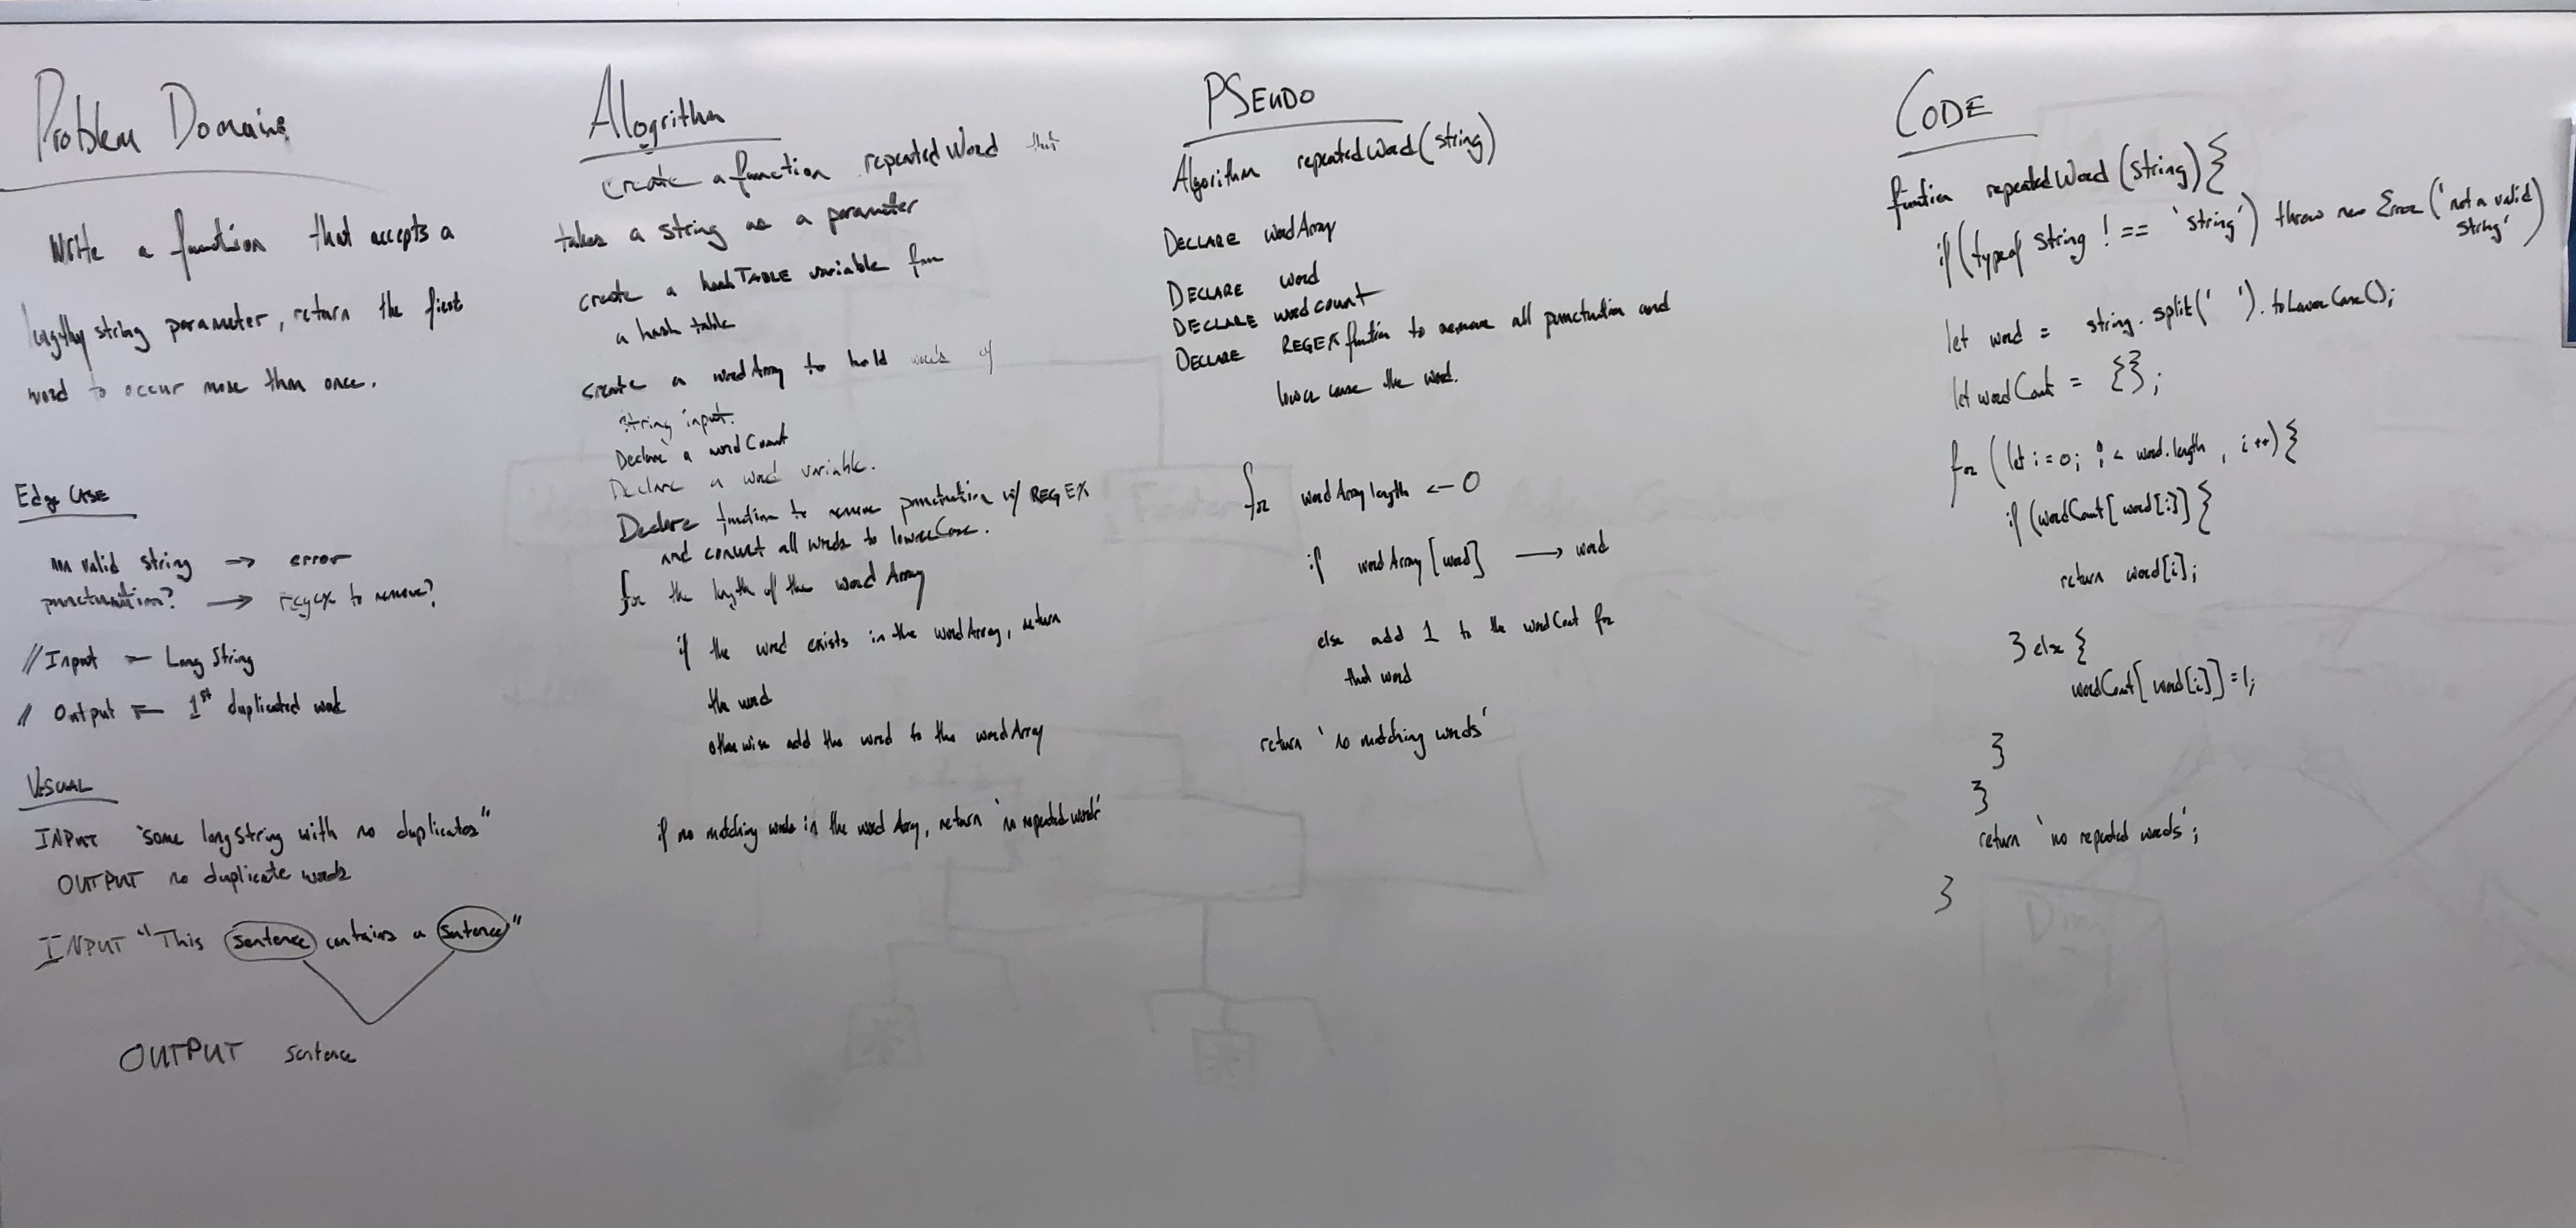 Problem Domain:
Write a function that accepts a
lengthy string parameter, return the first
word to occur more than once.
Edge CASE
non valid string → error
punctuation? → regex to remove?
// Input - Long String
// Output - 1st duplicated word
VISUAL
INPUT "some long string with no duplicates"
OUTPUT no duplicate words
INPUT "This sentence contains a sentence"
OUTPUT sentence
Alogrithm
create a function repeatedWord that
takes a string as a parameter
create a hashTABLE variable for
a hash table
create a wordArray to hold words of
string input.
Declare a wordCount
Declare a word variable.
Declare function to remove punctuation w/ REGEX
and convert all words to lowerCase.
for the length of the word Array
if the word exists in the wordArray, return
the word
otherwise add the word to the wordArray
if no matching words in the word Array, return 'no repeated words'
PSEUDO
Algorithm repeatedWord(string)
DECLARE wordArray
DECLARE word
DECLARE wordcount
DECLARE REGEX function to remove all punctuation and
lower case the word.
for wordArray length ← 0
if wordArray[word] → word
else add 1 to the wordCount for
that word
return 'no matching words'
CODE
function repeatedWord(string){
if(typeof string !== 'string') throw new Error('not a valid
string')
let word = string.split(' ').toLowerCase();
let wordCount = {};
for (let i=0; i < word.length, i++){
if (wordCount[word[i]]{
return word[i];
} else {
wordCount[word[i]]=1;
}
}
return 'no repeated words';
}